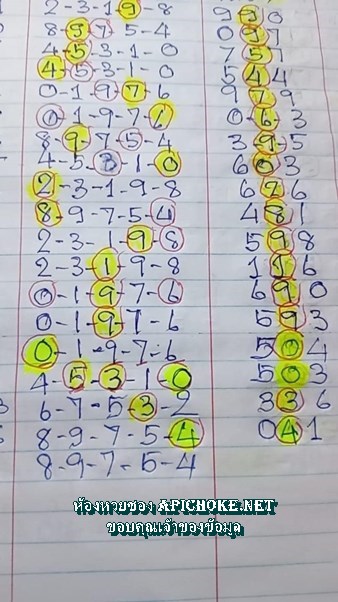 2-3-1-9-8 990
8-9-7-5-4 097
4-5-3-1-0 757
4-5-3-1-0 544
0-1-9-7-6 979
0-1-9-7-6 0-63
8-9-7-5-4 3-9-5
4-5-3-1-0 603
2-3-1-9-8 626
8-9-7-5-4 481
2-3-1-9-8 598
2-3-1-9-8 116
0-1-9-7-6 690
0-1-9-7-6 593
0-1-9-7-6 504
4-5-3-1-0 503
6-7-5-3-2 336
8-9-7-5-4 041
8-9-7-5-4
ห้องหวยซอง APICHOKE.NET
ขอบคุณเจ้าของข้อมูล